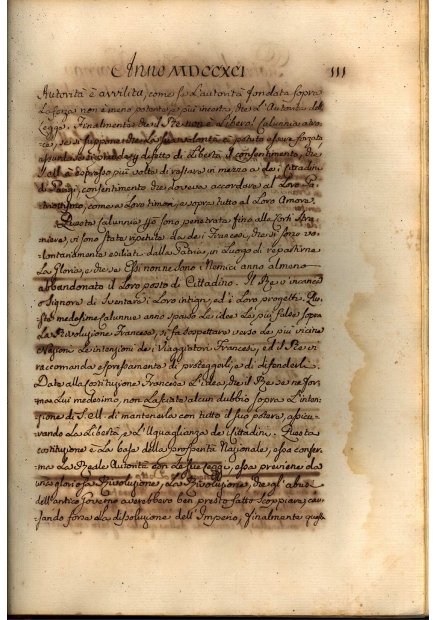 Anno MDCCXCI
111
Autorità è avvilita, come se l'autorità fondata sopra
La forza non è meno potente, e più incerta, che l'Autorità della
Legge. Finalmente che il Rè non è Libero! Calunnia atro-
ce, se si suppone che La sua volontà à potuto essere forzata
assurda se si prende per difetto di Libertà il consentimento, che
S. M. è espresso più volte di restare in mezzo a dei Cittadini
di Parigi, consentimento che doveva accordare al Loro Pa-
triottismo, come a Loro timori, e sopra tutto al Loro Amore.
Queste calunnie sono penetrate fino alle Corti Stra-
niere, vi sono state ripetute da dei Francesi, che si sono vo-
lontariamente esiliati dalla Patria, in Luogo di repartirne
La Gloria, e che se Essi non ne sono Nemici anno almeno
abbandonato il Loro posto di Cittadino. Il Rè v'incarica
o Signore di sventare i Loro intrighi, ed i Loro progetti. Que-
ste medesime calunnie anno sparso Le idee Le più false sopra
La Rivoluzione Francese, vi fa sospettare verso de più vicine
Nazioni Le intenzioni dei Viaggiatori Francesi, ed il Rè vi
raccomanda espressamente di proteggerli, e di difenderli.
Date alla costituzione Francese L'idea, che il Rè se ne for-
ma Lui medesimo, non Lasciate alcun dubbio sopra L'inten-
zione di S. M. di mantenerla con tutto il suo potere, assicu-
rando La Libertà, e L'Uguaglianza de Cittadini. Questa
costituzione è La base della prosperità Nazionale, essa confer-
ma La Reale Autorità con Le sue Leggi, essa previene da
una gloriosa Rivoluzione, La Rivoluzione, che gl'abusi
dell'antico Governo averebbero ben presto fatto scoppiare, cau-
sando forse La dissoluzione dell'Impero, finalmente questa